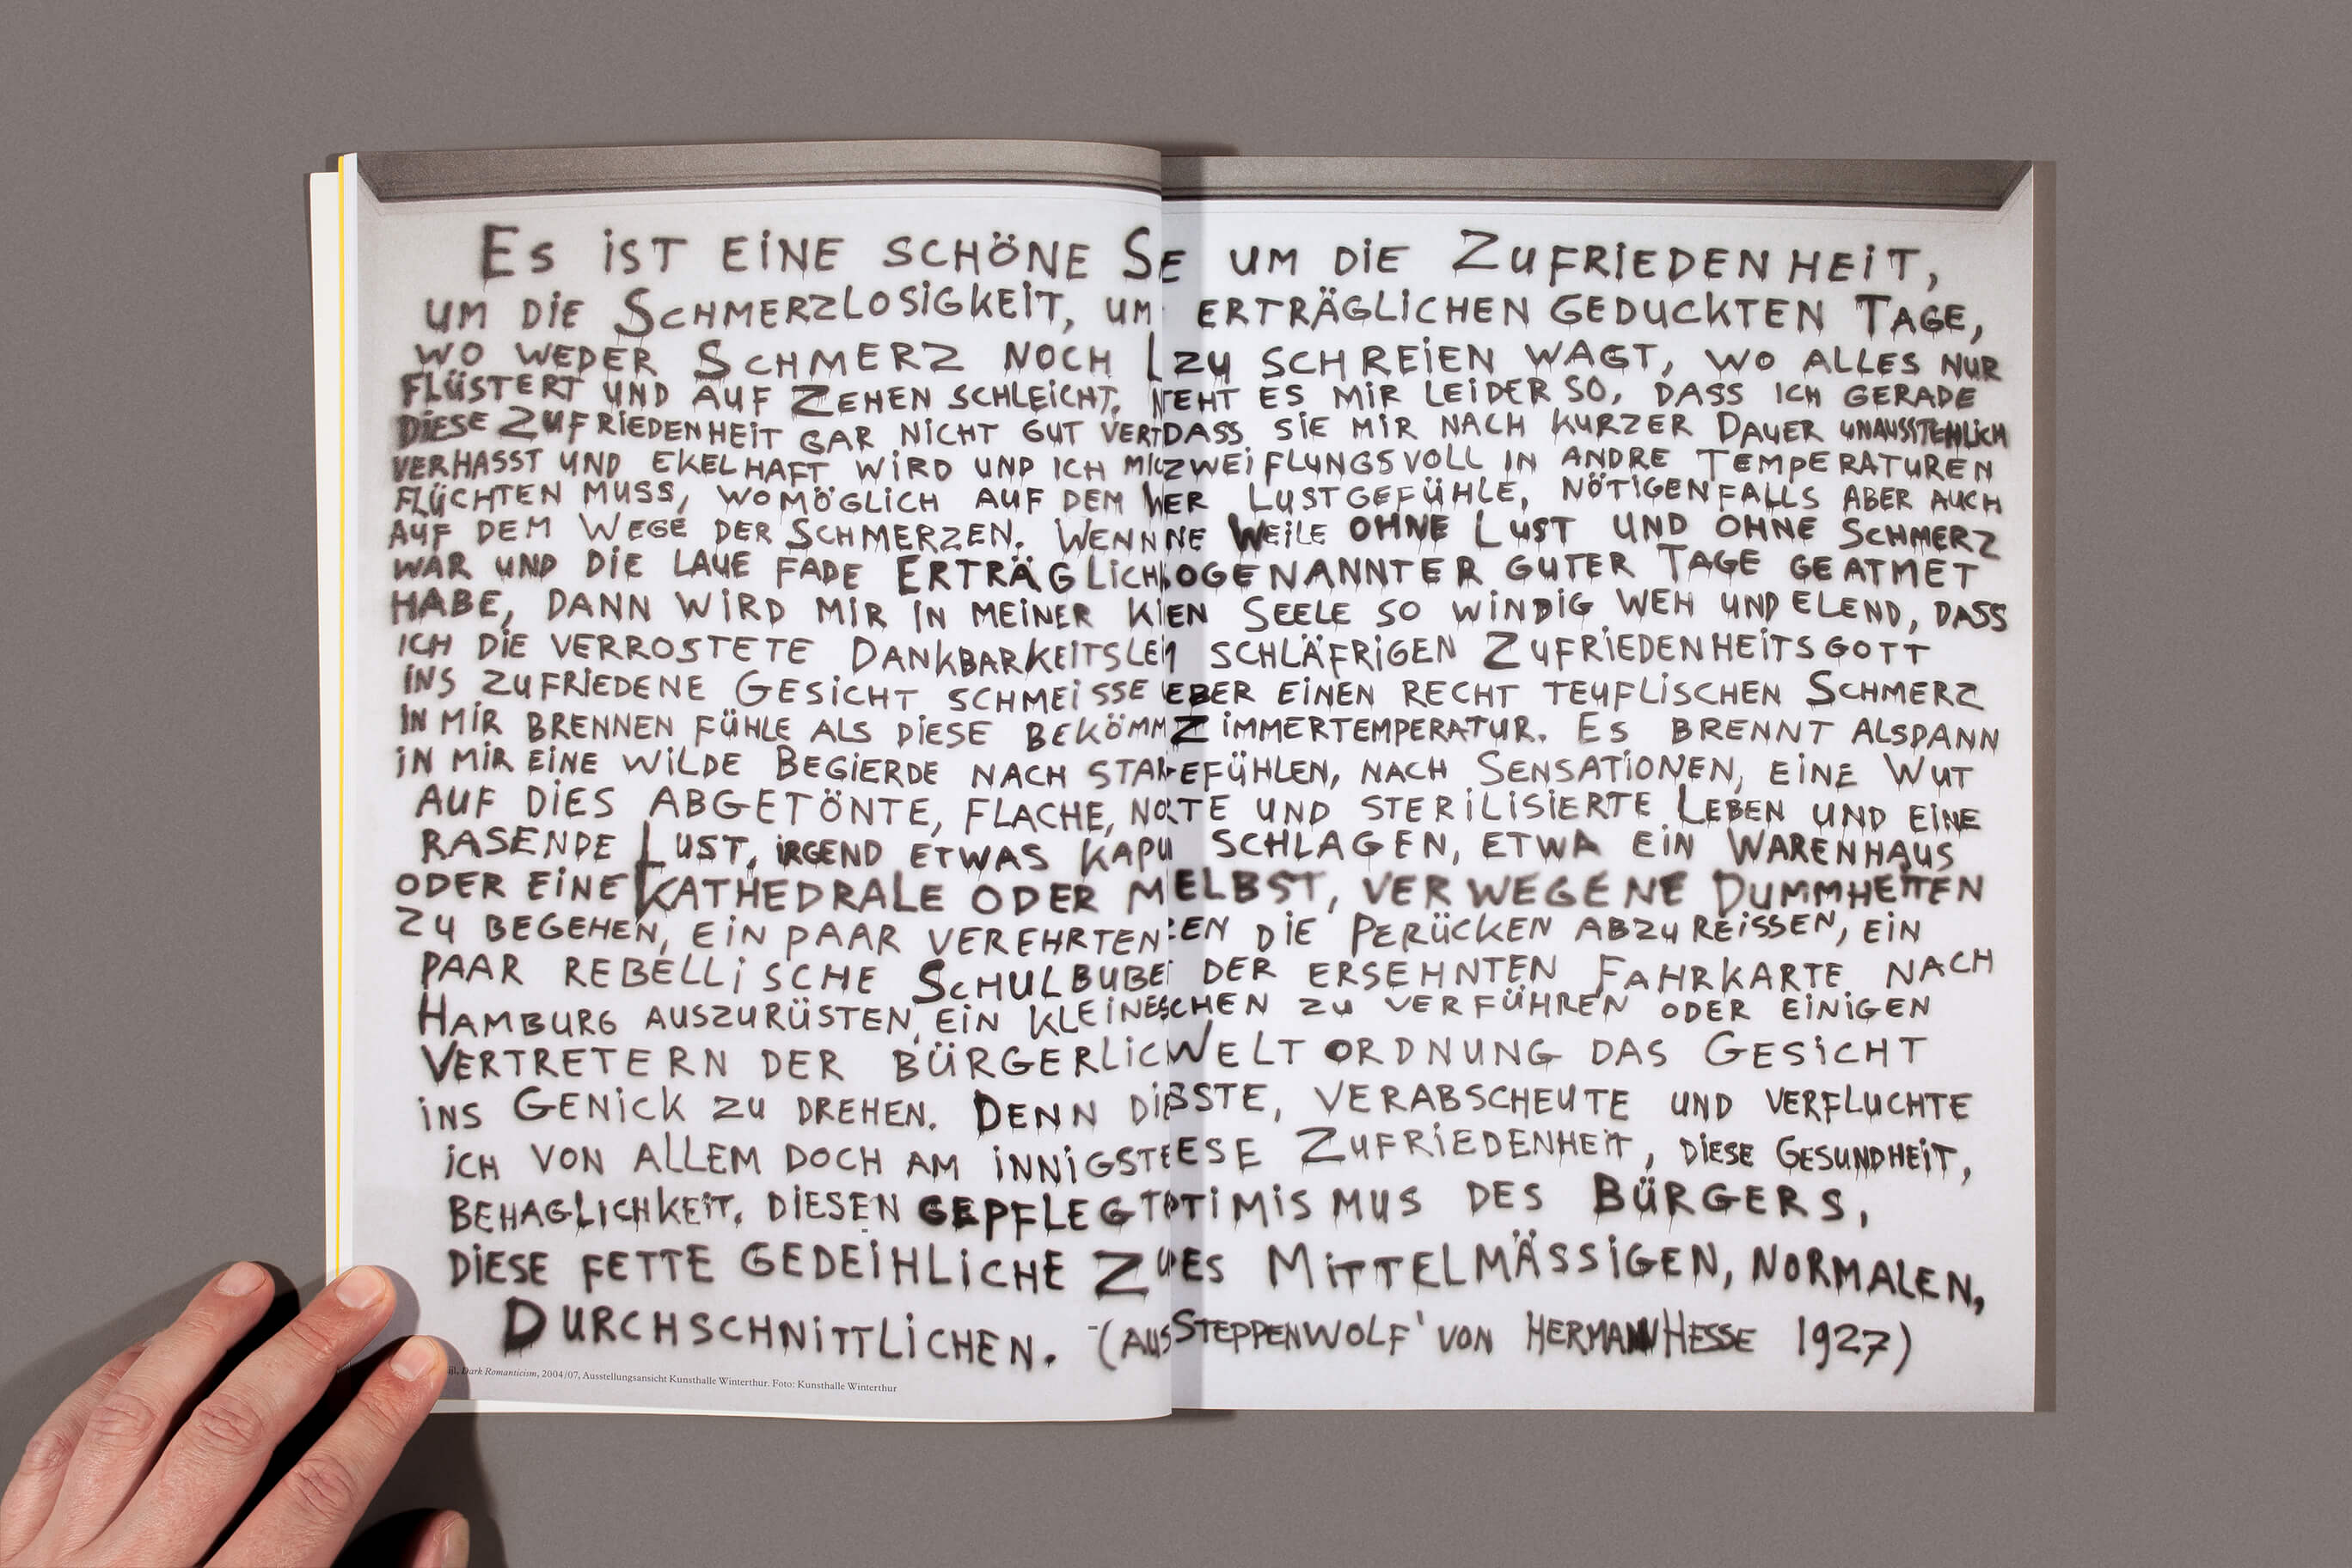 ES IST EINE SCHÖNE SE UM DIE ZUFRIEDENHEIT,
UM DIE SCHMERZLOSIGKEIT, UM ERTRÄGLICHEN GEDUCKTEN TAGE,
WO WEDER SCHMERZ NOCH L ZU SCHREIEN WAGT, WO ALLES NUR
FLÜSTERT UND AUF ZEHEN SCHLEICHT. TEHT ES MIR LEIDER SO, DASS ICH GERADE
DIESE ZUFRIEDENHEIT GAR NICHT GUT VERT DASS SIE MIR NACH KURZER DAUER UNAUSSTEHLICH
VERHASST UND EKELHAFT WIRD UND ICH MIC ZWEIFLUNGSVOLL IN ANDRE TEMPERATUREN
FLÜCHTEN MUSS, WOMÖGLICH AUF DEM WER LUSTGEFÜHLE, NÖTIGENFALLS ABER AUCH
AUF DEM WEGE DER SCHMERZEN. WENN NE WEILE OHNE LUST UND OHNE SCHMERZ
WAR UND DIE LAUE FADE ERTRÄGLICH OGENANNTER GUTER TAGE GEATMET
HABE, DANN WIRD MIR IN MEINER KI EN SEELE SO WINDIG WEH UND ELEND, DASS
ICH DIE VERROSTETE DANKBARKEITSLEI SCHLÄFRIGEN ZUFRIEDENHEITSGOTT
INS ZUFRIEDENE GESICHT SCHMEISSE EBER EINEN RECHT TEUFLISCHEN SCHMERZ
IN MIR BRENNEN FÜHLE ALS DIESE BEKÖMM ZIMMERTEMPERATUR. ES BRENNT ALSDANN
IN MIR EINE WILDE BEGIERDE NACH STAR EFÜHLEN, NACH SENSATIONEN, EINE WUT
AUF DIES ABGETÖNTE, FLACHE, NO TE UND STERILISIERTE LEBEN UND EINE
RASENDE LUST, IRGEND ETWAS KAPU SCHLAGEN, ETWA EIN WARENHAUS
ODER EINE KATHEDRALE ODER M ELBST, VERWEGENE DUMMHEITEN
ZU BEGEHEN, EIN PAAR VEREHRTEN EN DIE PERÜCKEN ABZUREISSEN, EIN
PAAR REBELLISCHE SCHULBUBE DER ERSEHNTEN FAHRKARTE NACH
HAMBURG AUSZURÜSTEN, EIN KLEINES CHEN ZU VERFÜHREN ODER EINIGEN
VERTRETERN DER BÜRGERLIC WELTORDNUNG DAS GESICHT
INS GENICK ZU DREHEN. DENN DIE SSTE, VERABSCHEUTE UND VERFLUCHTE
ICH VON ALLEM DOCH AM INNIGSTE ESE ZUFRIEDENHEIT, DIESE GESUNDHEIT,
BEHAGLICHKEIT, DIESEN GEPFLEGT PTIMISMUS DES BÜRGERS,
DIESE FETTE GEDEIHLICHE ZU ES MITTELMÄSSIGEN, NORMALEN,
DURCHSCHNITTLICHEN. (AUS STEPPENWOLF' VON HERMANN HESSE 1927)
Dark Romanticism, 2004/07, Ausstellungsansicht Kunsthalle Winterthur. Foto: Kunsthalle Winterthur